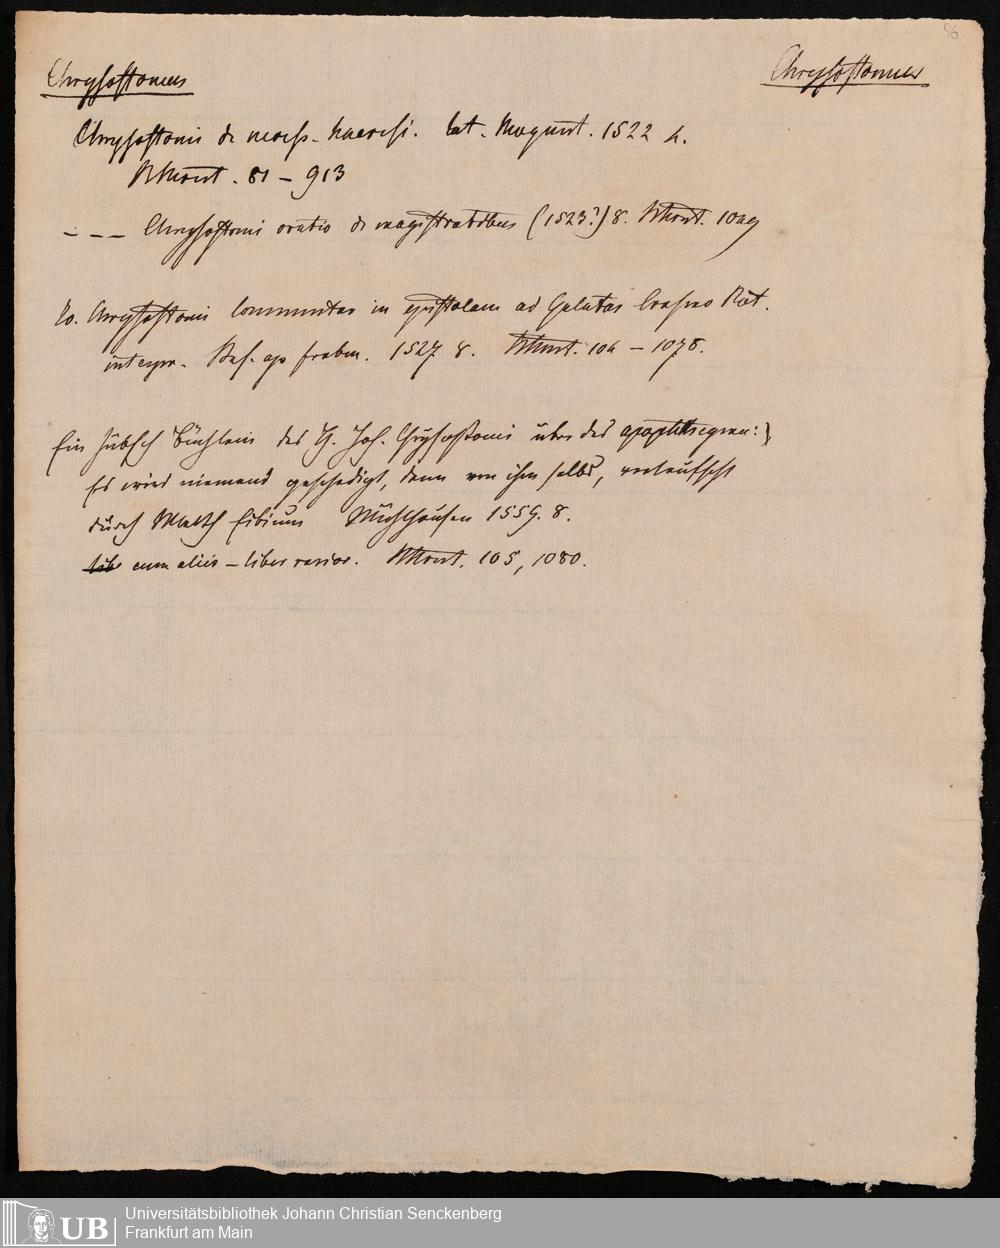 56
Chrysostomus Chrysostomus
Chrysostomi de haeresi. lat. Mogunt. 1522 4.
81 – 913
– – – Chrysostomi oratio de magistratibus (1523?) 8.
Jo. Chrysostomi Commentar in epistolam ad Galatas Erasmo Rot.
interpr. Bas. ap froben. 1527 8. 104 – 1078.
Ein hübsch Büchlein des H. Joh. Chrysostomi über das
Es wird niemand geschedigt, denn von ihm selbs, verteutscht
durch Matth Mühlhausen 1559. 8.
cum aliis – liber rarior. 105, 1080.
UB
Universitätsbibliothek Johann Christian Senckenberg
Frankfurt am Main